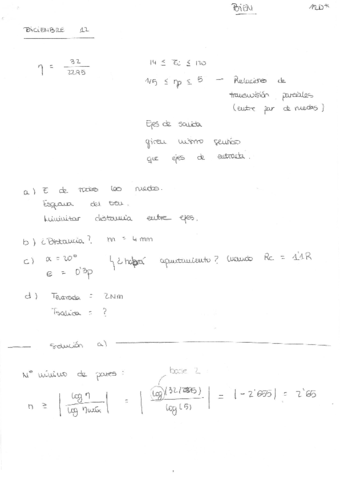 BIEN
DICIEMBRE 12
η = 32 / 2295
14 ≤ Zi ≤ 120
1/5 ≤ ηp ≤ 5 — Relaciones de
transmisión parciales
(entre par de ruedas)
Ejes de salida
giran mismo sentido
que ejes de entrada.
a) Z de todas las ruedas.
Esquema del tren.
Minimizar distancia entre ejes.
b) ¿Distancia? m = 4 mm
c) α = 20° ¿ apuntamiento? cuando Rc = 1'1R
e = 0'5p
d) Tentrada = 2Nm
Tsalida = ?
Solución a)
Nº mínimo de pares:
base 2
n ≥ | log η / log ηlím | = | log(32/2295) / log(5) | = | -2'655 | = 2'65